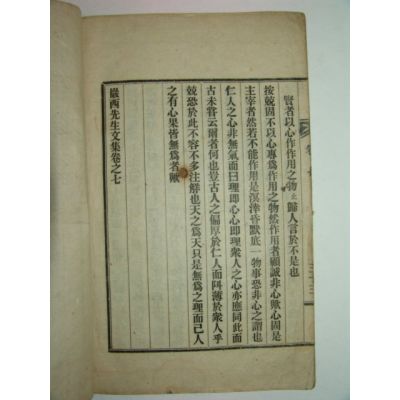 賢者以心作作用之物止歸人言於不是也
按兢固不以心專爲作用之物然作用者顧誠非心歟心固是
主宰者然若不能作用是溟涬昏默底一物事恐非心之謂也
仁人之心非無氣而曰理卽心心卽理衆人之心亦應同此而
古未嘗云爾者何也豈古人之偏厚於仁人而薄於衆人乎
兢恐於此不容不多注解也天之爲天只是無爲之理而已人
之有心果皆無爲者歟
巖西先生文集卷之七